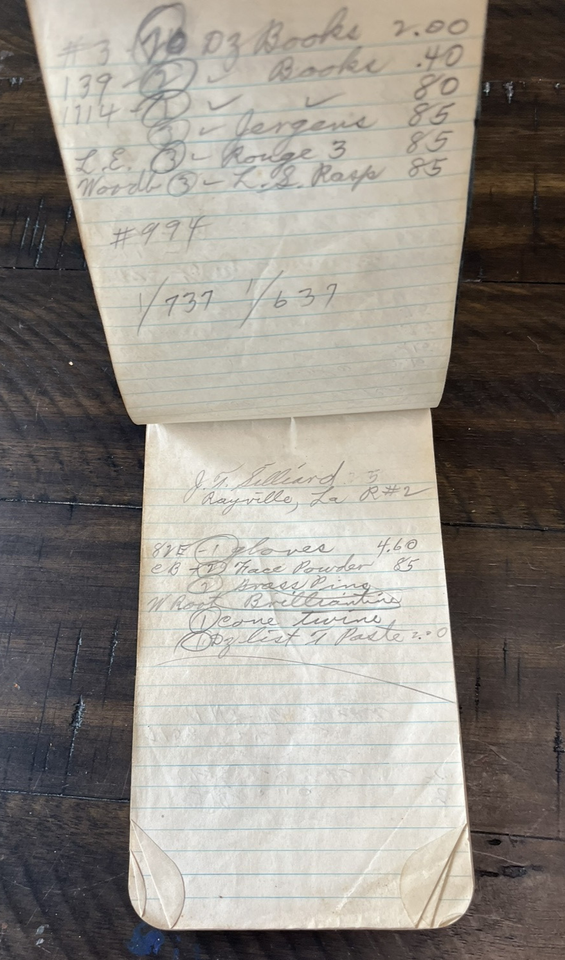 #3 - 20 Dz Books 2.00
139 - 2 ✓ Books .40
1114 - 2 ✓ ✓ 80
3 ✓ Jergens 85
L.E. 3 - Rouge 3 85
Woodb 3 - L.S. Rasp 85
#994
1/737 1/637
J.T. Rayville, La R#2
82E - 1 gloves 4.60
CB - Face Powder 85
Brass Pins
W Root Brilliantine
1 cone twine
1 Dz list T Paste 2.00